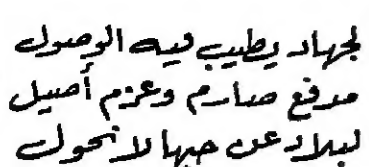 لجهاد يطيب فيه الوصول
مدفع صارم وعزم أصيل
لبلاد عن حبها لا نحول